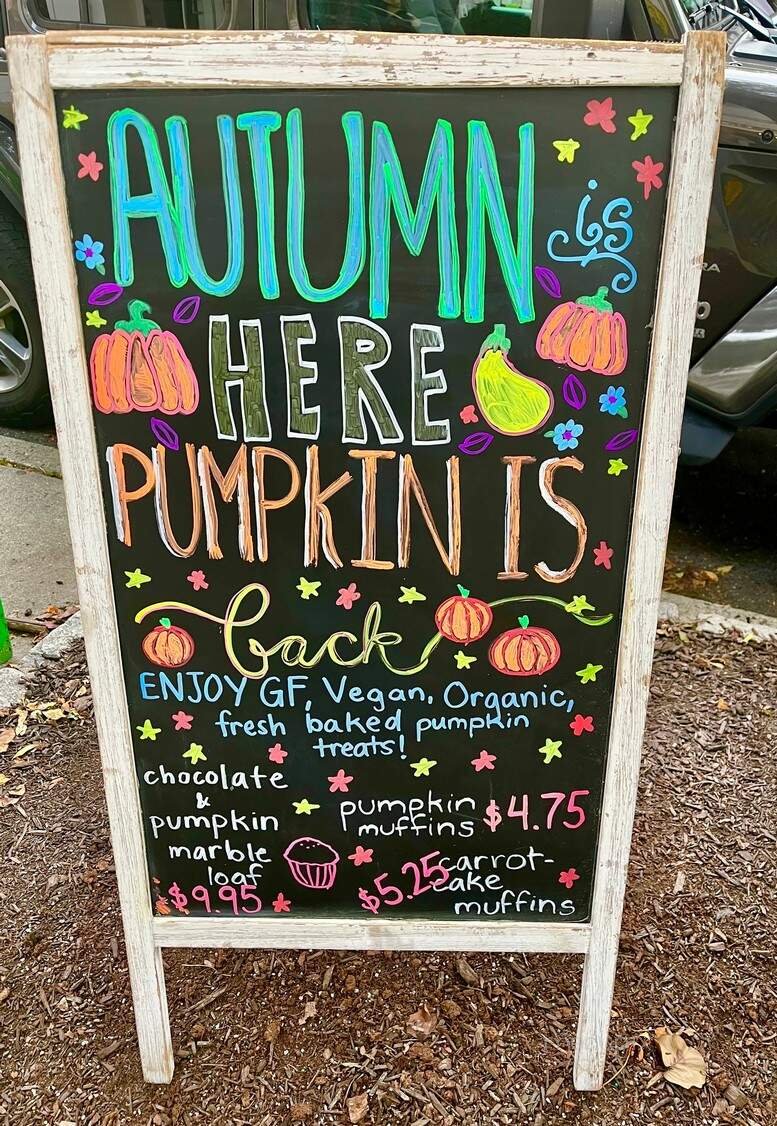 AUTUMN is
HERE
PUMPKIN IS
back
ENJOY GF, Vegan, Organic,
fresh baked pumpkin
treats!
chocolate
&
pumpkin
marble
loaf
$9.95
pumpkin
muffins
$4.75
$5.25
carrot-
cake
muffins